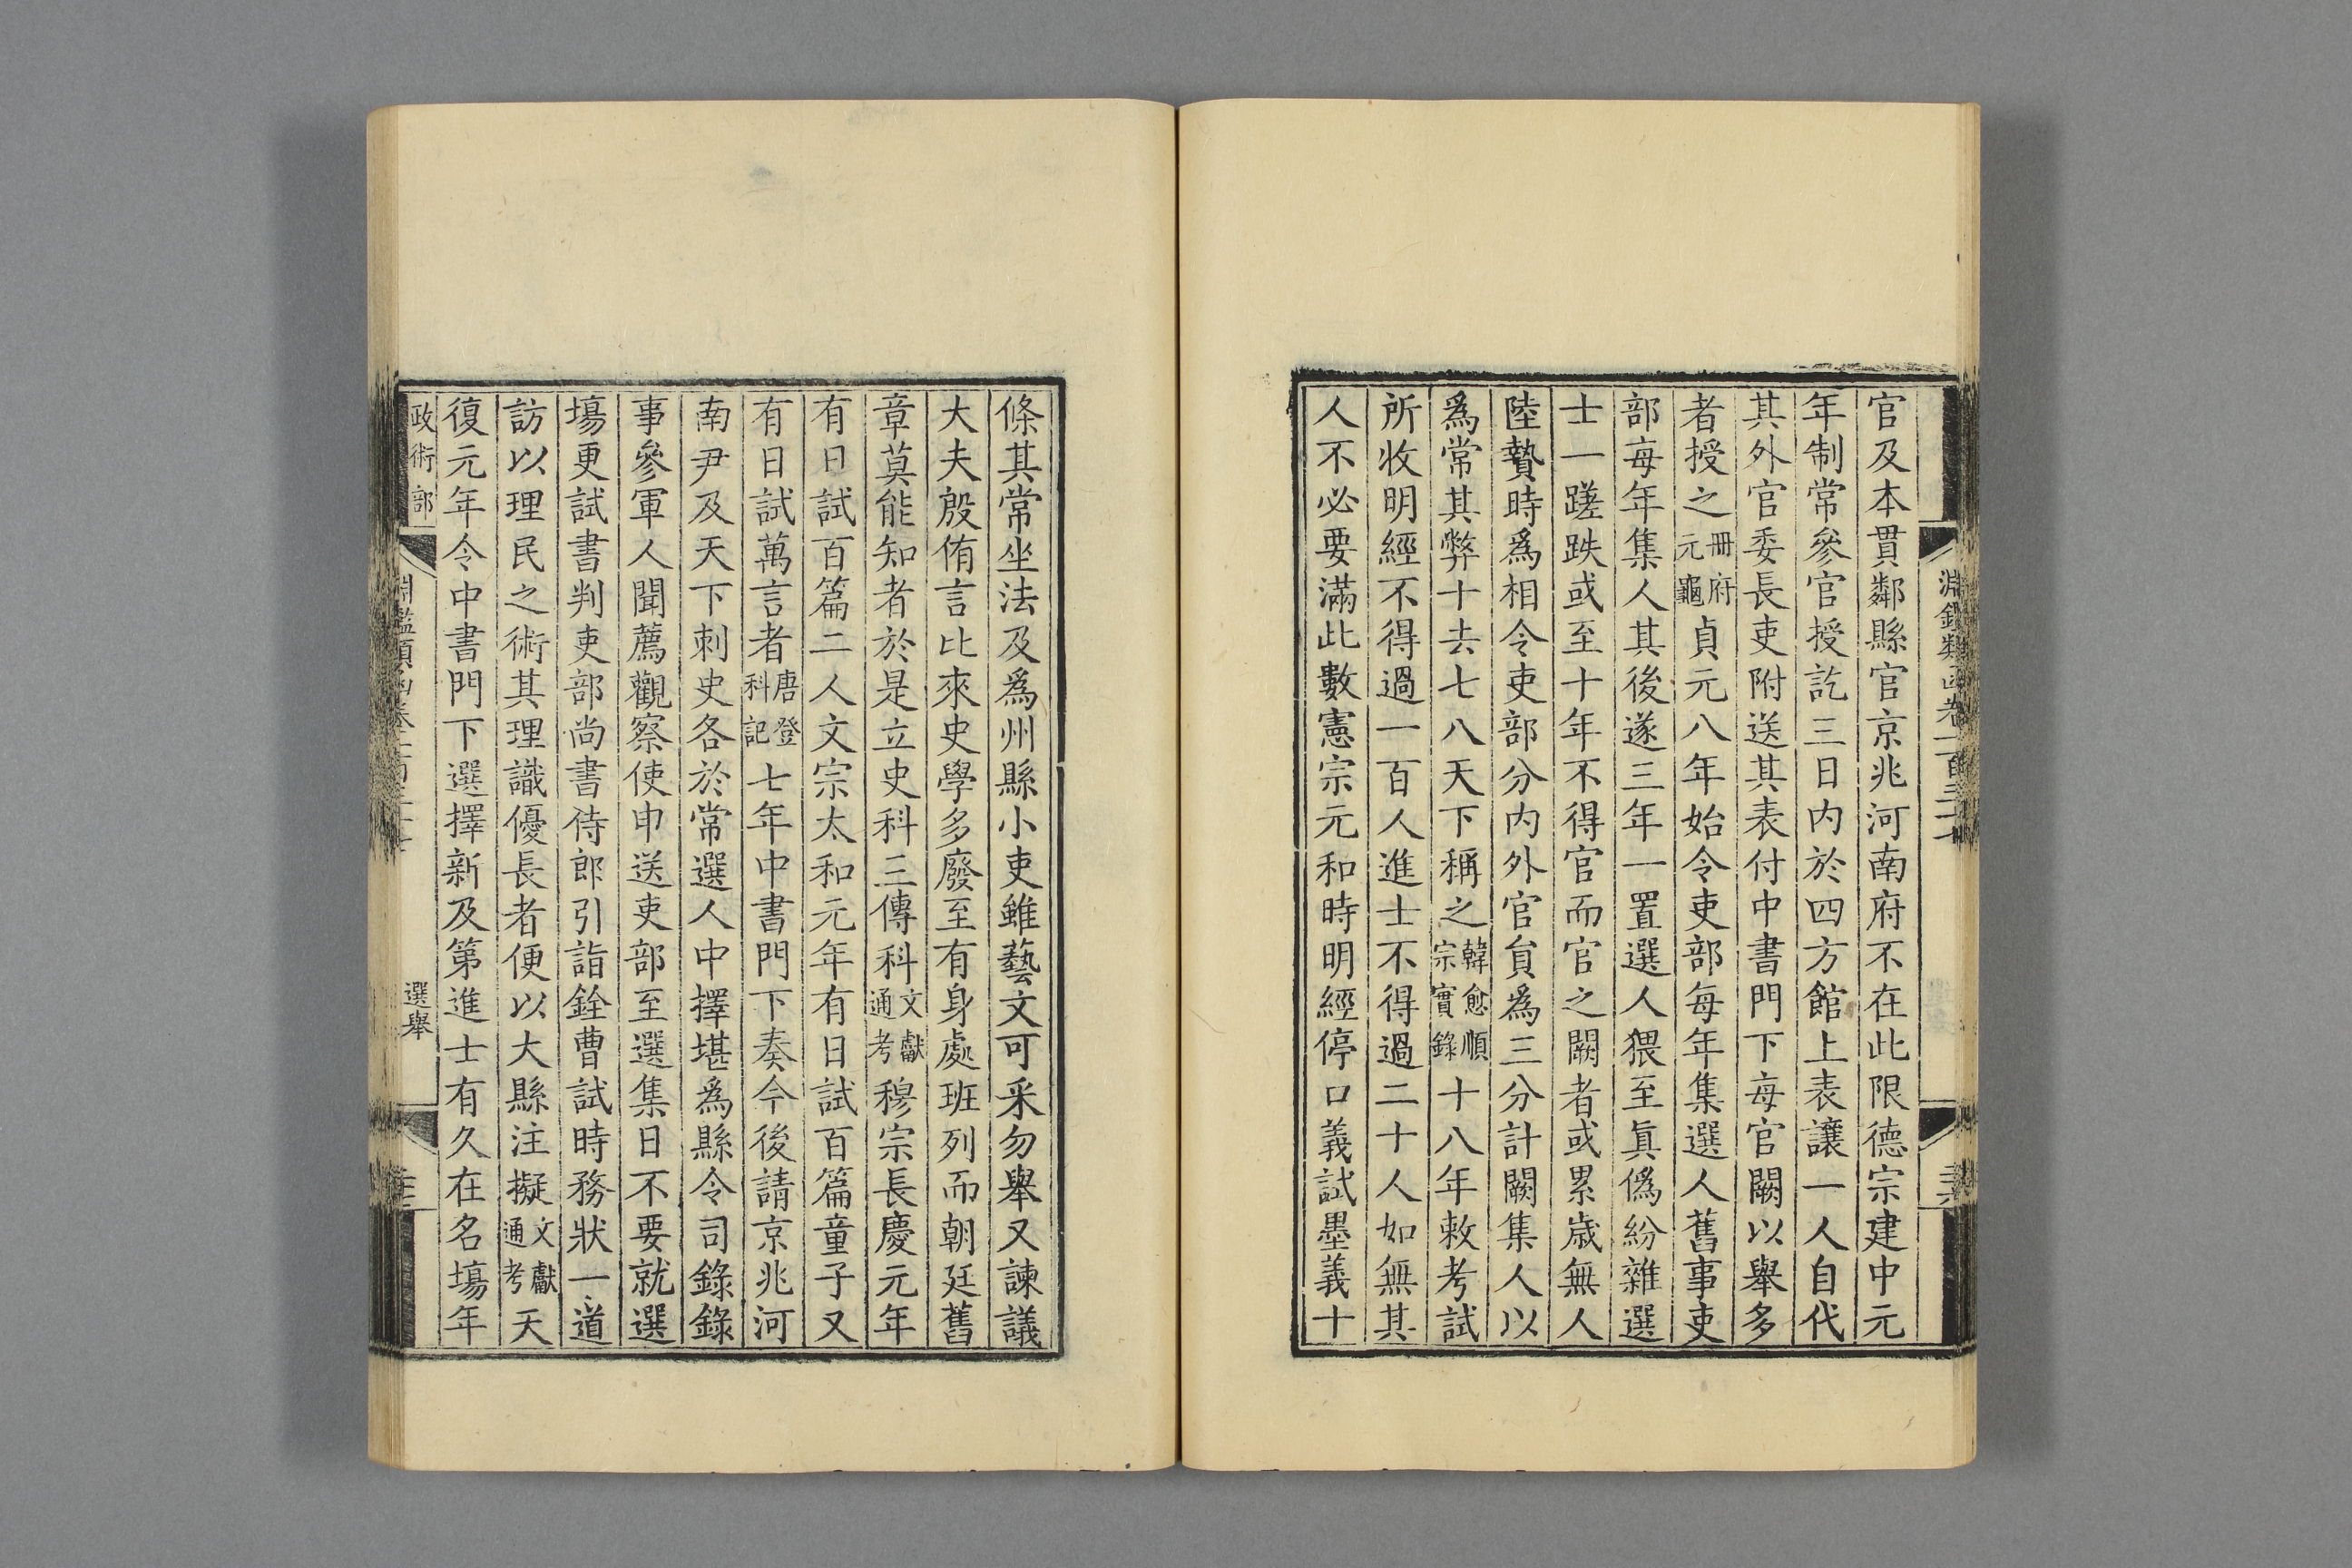 官及本貫鄰縣官京兆河南府不在此限德宗建中元
年制常參官授訖三日内於四方館上表讓一人自代
其外官委長吏附送其表付中書門下每官闕以舉多
者授之冊府元龜貞元八年始令吏部每年集選人舊事吏
部每年集人其後遂三年一置選人猥至眞僞紛雜選
士一蹉跌或至十年不得官而官之闕者或累歲無人
陸贄時爲相令吏部分内外官員爲三分計闕集人以
爲常其弊十去七八天下稱之韓愈順宗實錄十八年敕考試
所收明經不得過一百人進士不得過二十人如無其
人不必要滿此數憲宗元和時明經停口義試墨義十
條其常坐法及爲州縣小吏雖藝文可采勿舉又諫議
大夫殷侑言比來史學多廢至有身處班列而朝廷舊
章莫能知者於是立史科三傳科文獻通考穆宗長慶元年
有日試百篇二人文宗太和元年有日試百篇童子又
有日試萬言者唐登科記七年中書門下奏今後請京兆河
南尹及天下刺史各於常選人中擇堪爲縣令司錄錄
事參軍人聞薦觀察使申送吏部至選集日不要就選
塲更試書判吏部尚書侍郎引詣銓曹試時務狀一道
訪以理民之術其理識優長者便以大縣注擬文獻通考天
復元年令中書門下選擇新及第進士有久在名塲年
政術部
選舉